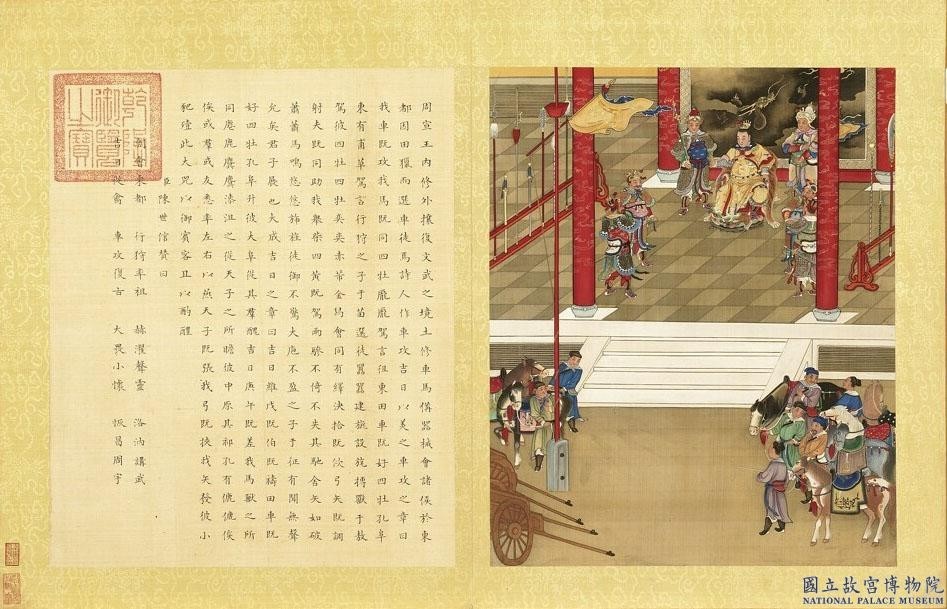 周宣王内修外攘復文武之境土修車馬備器械會諸侯於東
都因田獵而選車徒焉詩人作車攻吉日以美之車攻之章曰
我車既攻我馬既同四牡龐龐駕言徂東田車既好四牡孔阜
東有甫草駕言行狩之子于苗選徒囂囂建旐設旄搏獸于敖
駕彼四牡四牡奕奕赤芾金舄會同有繹決拾既佽弓矢既調
射夫既同助我舉柴四黃既駕兩驂不倚不失其馳舍矢如破
蕭蕭馬鳴悠悠旆旌徒御不驚大庖不盈之子于征有聞無聲
允矣君子展也大成吉日之章曰吉日維戊既伯既禱田車既
好四牡孔阜升彼大阜從其羣醜吉日庚午既差我馬獸之所
同麀鹿麌麌漆沮之從天子之所瞻彼中原其祁孔有儦儦俟
俟或羣或友悉率左右以燕天子既張我弓既挾我矢發彼小
豝殪此大兕以御賓客且以酌醴
臣陳世倌贊曰
朝會東都 行狩率祖 赫濯聲靈 洛汭講武
吉日從禽 車攻復古 大畏小懷 恢昌周宇
乾隆御覽之寶
國立故宮博物院
NATIONAL PALACE MUSEUM